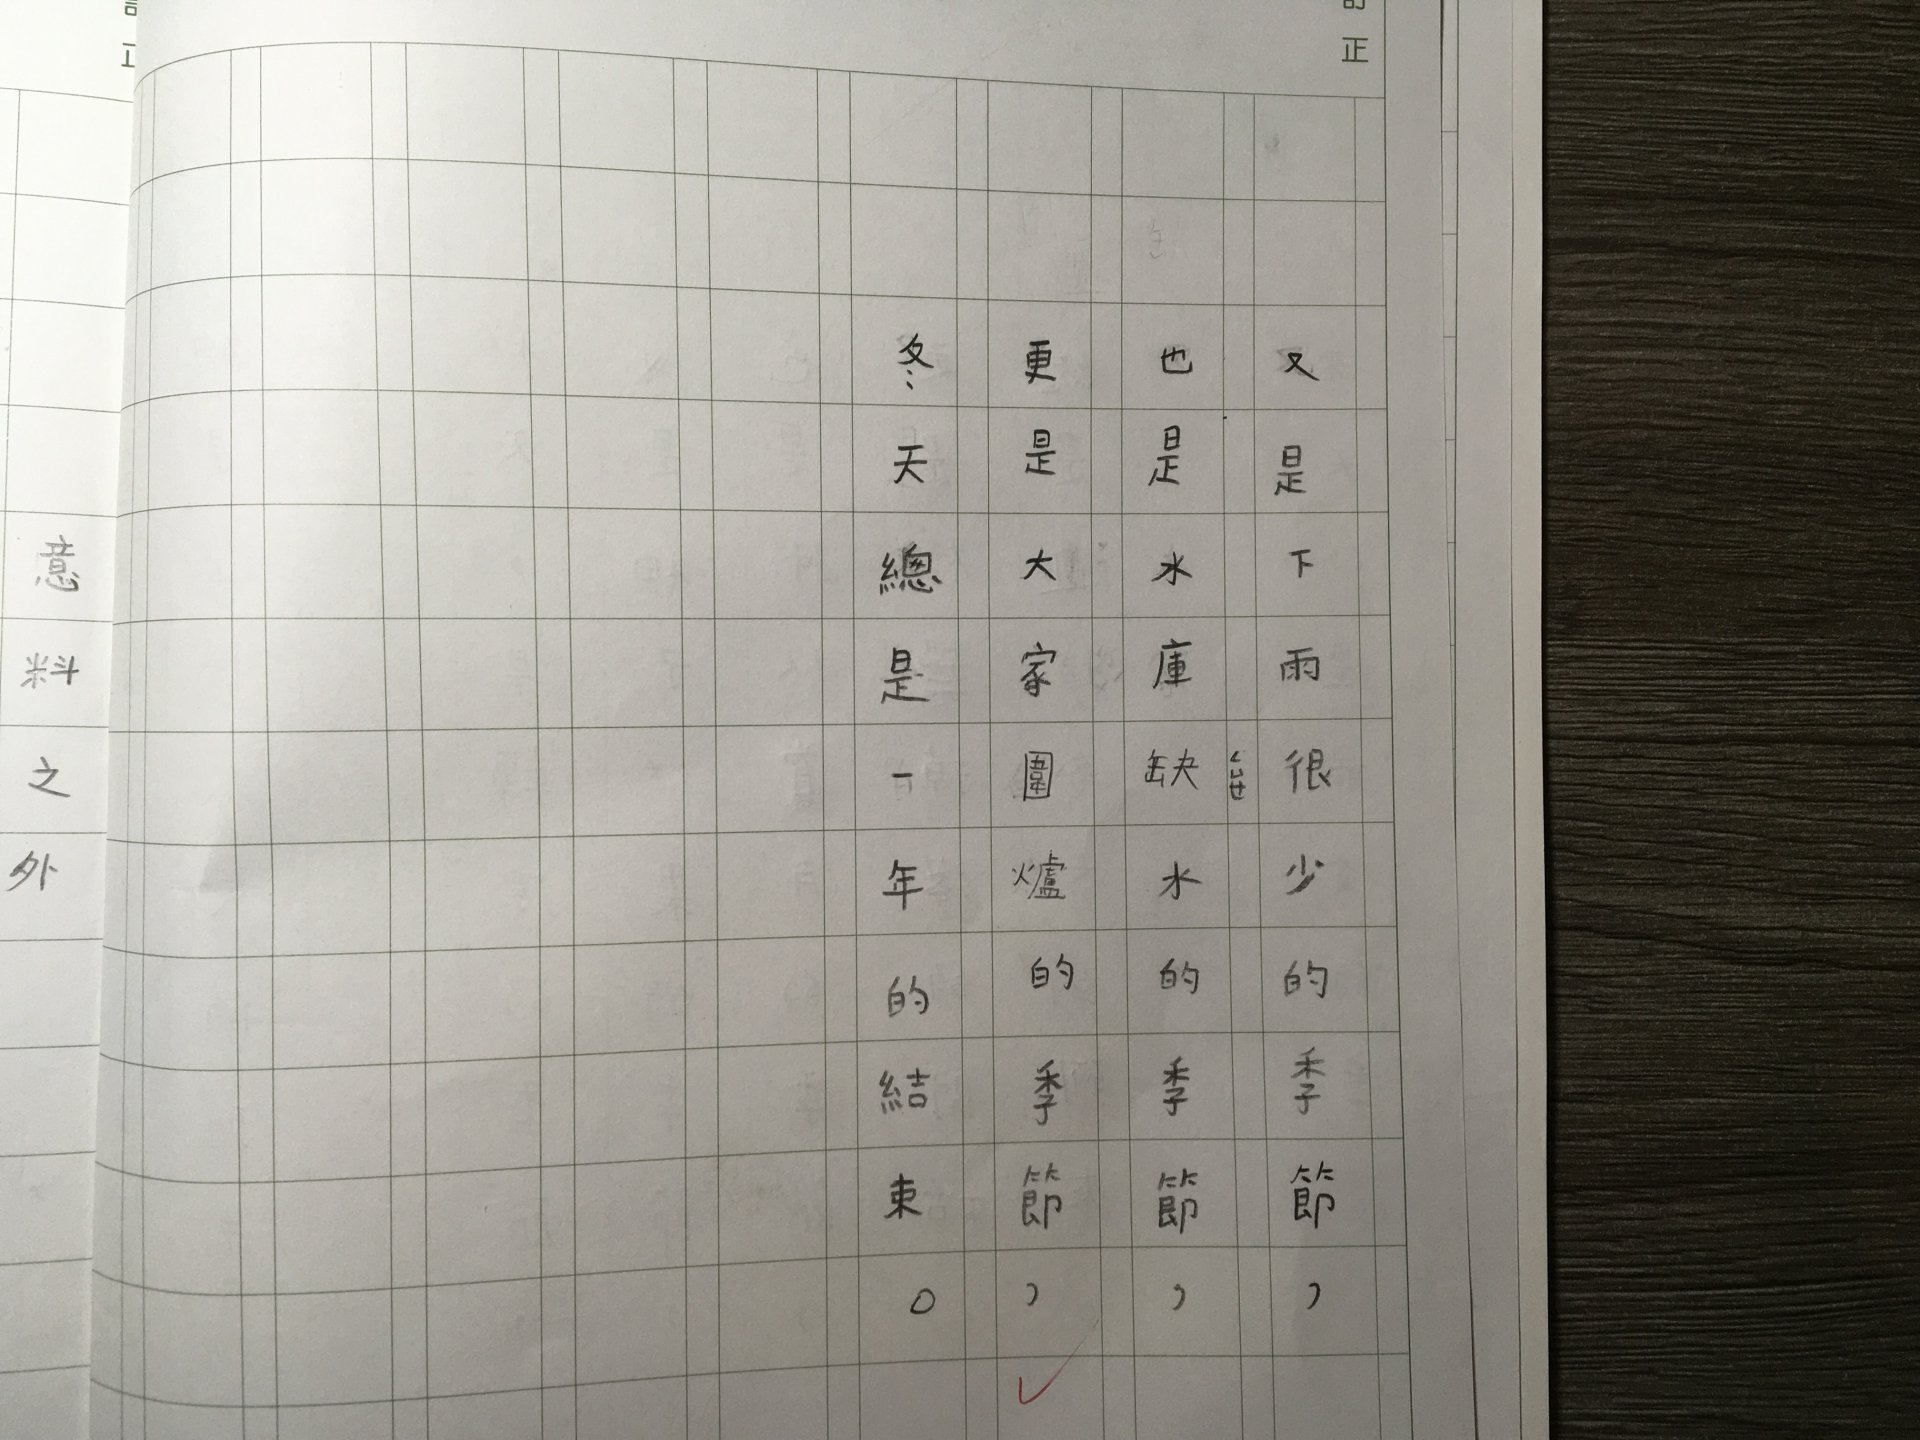 訂正
又是下雨很少的季節，
也是水庫缺水的季節，
更是大家圍爐的季節，
冬天總是一年的結束。
訂正
意料之外